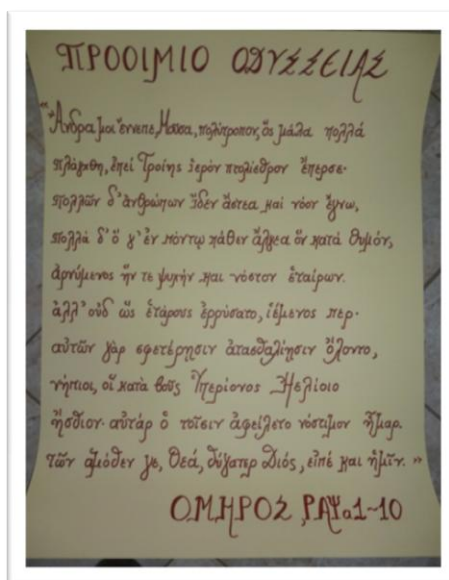 ΠΡΟΟΙΜΙΟ ΟΔΥΣΣΕΙΑΣ
"Ἄνδρα μοι ἔννεπε, Μοῦσα, πολύτροπον, ὃς μάλα πολλά
πλάγχθη, ἐπεί Τροίης ἱερόν πτολίεθρον ἔπερσε·
πολλῶν δ' ἀνθρώπων ἴδεν ἄστεα καί νόον ἔγνω,
πολλά δ' ὅ γ' ἐν πόντῳ πάθεν ἄλγεα ὅν κατά θυμόν,
ἀρνύμενος ἥν τε ψυχήν και νόστον ἑταίρων.
ἀλλ' οὐδ ὣς ἑτάρους ἐρρύσατο, ἱέμενος περ·
αὐτῶν γάρ σφετέρησιν ἀτασθαλίησιν ὄλοντο,
νήπιοι, οἵ κατά βοῦς Ὑπερίονος Ἠελίοιο
ἤσθιον· αὐτάρ ὁ τοῖσιν ἀφείλετο νόστιμον ἦμαρ.
τῶν ἀμόθεν γε, θεά, θύγατερ Διός, εἰπέ και ἡμῖν. "
ΟΜΗΡΟΣ, ΡΑΨ.α1-10